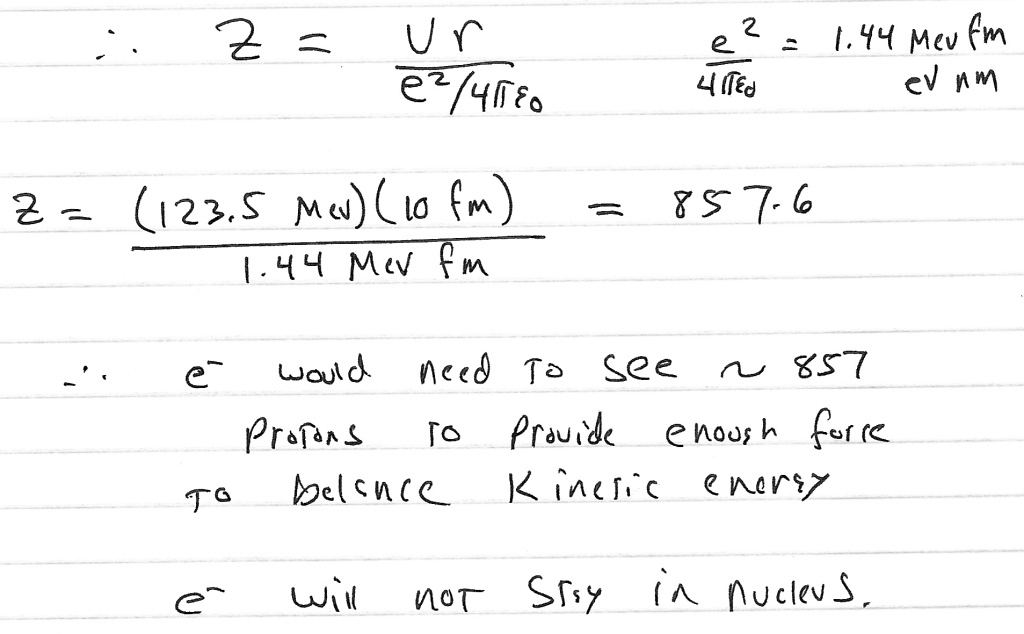 ∴ Z = Ur / (e²/4πε₀)   e²/4πε₀ = 1.44 MeV fm
eV nm
Z = (123.5 MeV)(10 fm) / 1.44 MeV fm = 857.6
∴ e⁻ would need To see ~ 857
Protons To Provide enough force
To balance Kinetic energy
e⁻ will not stay in nucleus.